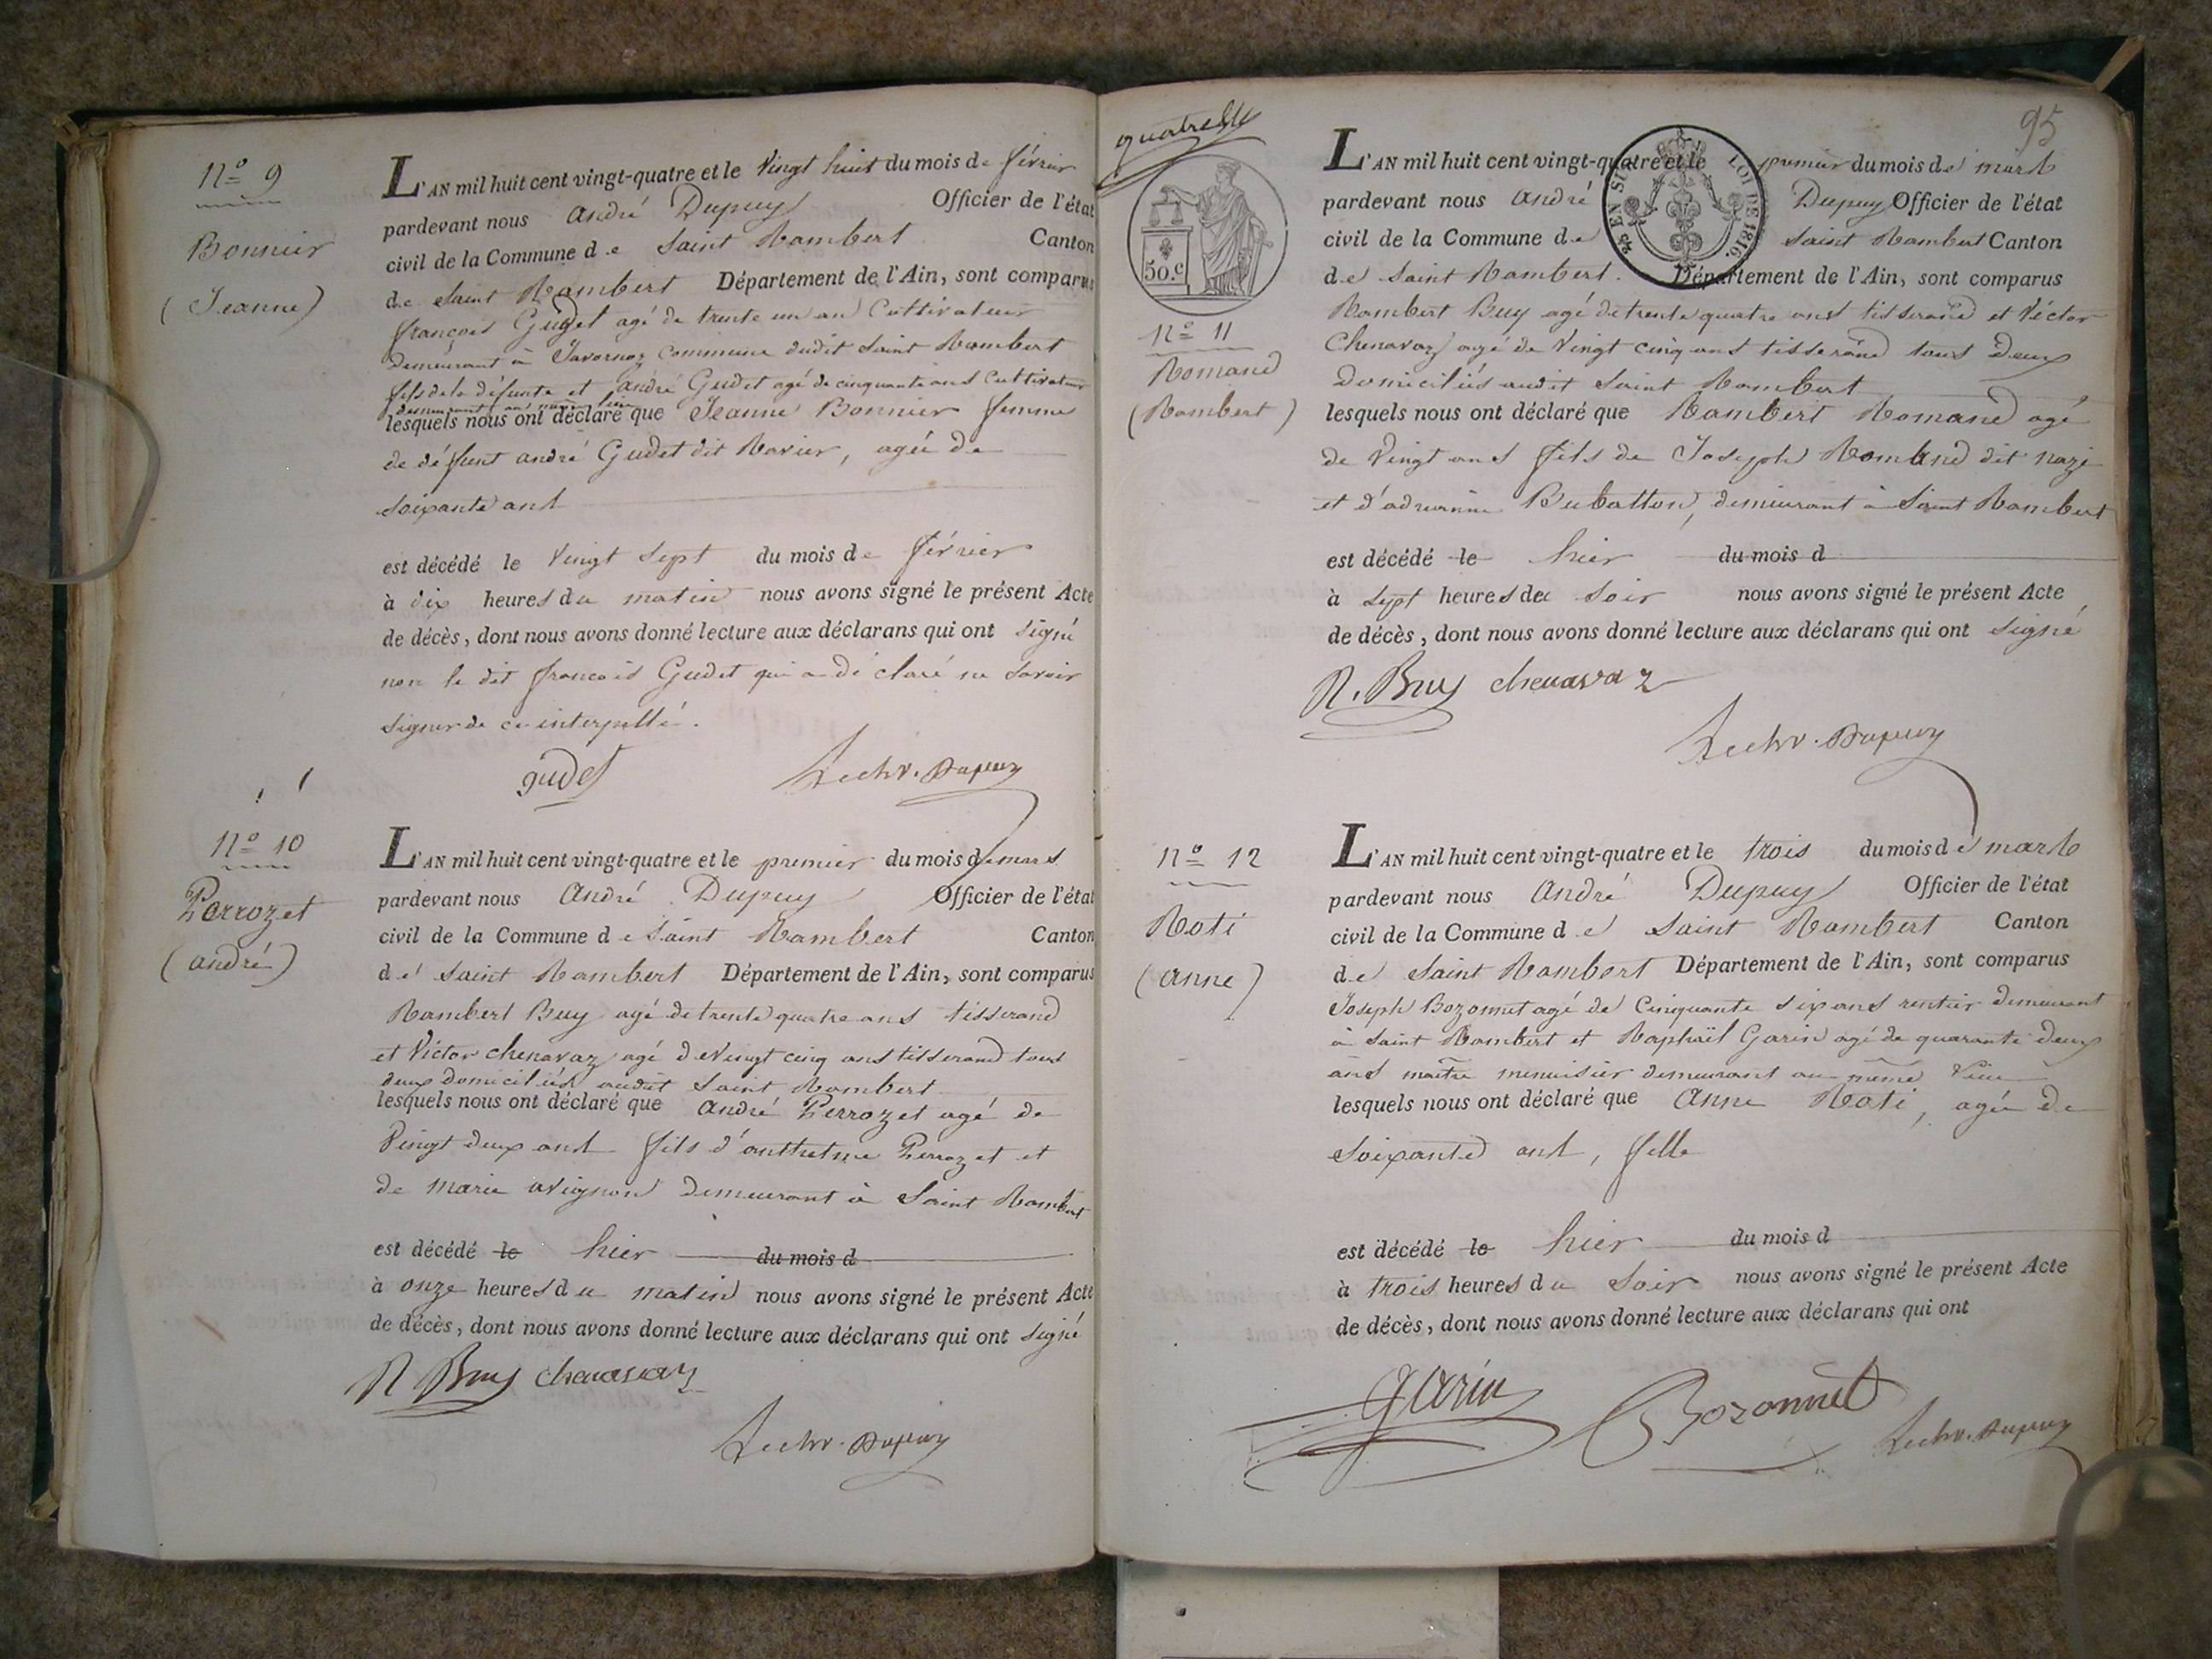 N.o 9
Bonnier
(Jeanne)
L'AN mil huit cent vingt-quatre et le vingt huit du mois de février
pardevant nous André Dupuy Officier de l'état
civil de la Commune de Saint Rambert Canton
de Saint Rambert Département de l'Ain, sont comparus
françois Gudet agé de trente un an Cultivateur
demeurant à Javornoz Commune dudit Saint Rambert
fils de la défunte et andré Gudet agé de cinquante ans Cultivateur
demeurant au même lieu
lesquels nous ont déclaré que Jeanne Bonnier femme
de défunt andré Gudet dit Ravier, agée de
soixante ans
est décédé le vingt sept du mois de février
à dix heures du matin nous avons signé le présent Acte
de décès, dont nous avons donné lecture aux déclarans qui ont signé
non le dit françois Gudet qui a déclaré ne savoir
signer de ce interpellé.
gudet Dupuy
N.o 10
Perrozet
(andré)
L'AN mil huit cent vingt-quatre et le premier du mois de mars
pardevant nous André Dupuy Officier de l'état
civil de la Commune de Saint Rambert Canton
de Saint Rambert Département de l'Ain, sont comparus
Rambert Buy agé de trente quatre ans tisserand
et Victor Chenavaz agé de vingt cinq ans tisserand tous
deux domiciliés audit Saint Rambert
lesquels nous ont déclaré que André Perrozet agé de
vingt deux ans fils d'anthelme Perrozet et
de marie avignon demeurant à Saint Rambert
est décédé le hier du mois d
à onze heures du matin nous avons signé le présent Acte
de décès, dont nous avons donné lecture aux déclarans qui ont signé
R Buy chenavaz
Dupuy
95
50.c
EN SUS LOI DE 1816
N.o 11
Romand
(Rambert)
L'AN mil huit cent vingt-quatre et le premier du mois de mars
pardevant nous André Dupuy Officier de l'état
civil de la Commune de Saint Rambert Canton
de Saint Rambert. Département de l'Ain, sont comparus
Rambert Buy agé de trente quatre ans tisserand et Victor
Chenavaz agé de vingt cinq ans tisserand tous deux
domiciliés audit Saint Rambert
lesquels nous ont déclaré que Rambert Romand agé
de vingt ans fils de Joseph Romand dit
et d'adrianne demeurant à Saint Rambert
est décédé le hier du mois d
à sept heures du soir nous avons signé le présent Acte
de décès, dont nous avons donné lecture aux déclarans qui ont signé
R. Buy chenavaz
Dupuy
N.o 12
Roti
(anne)
L'AN mil huit cent vingt-quatre et le trois du mois de mars
pardevant nous André Dupuy Officier de l'état
civil de la Commune de Saint Rambert Canton
de Saint Rambert Département de l'Ain, sont comparus
Joseph Bozonnet agé de Cinquante six ans rentier demeurant
à Saint Rambert et Raphaël Garin agé de quarante deux
ans maître menuisier demeurant au même lieu
lesquels nous ont déclaré que Anne Roti, agée de
soixante ans, fille
est décédé le hier du mois d
à trois heures du soir nous avons signé le présent Acte
de décès, dont nous avons donné lecture aux déclarans qui ont
garin Bozonnet Dupuy